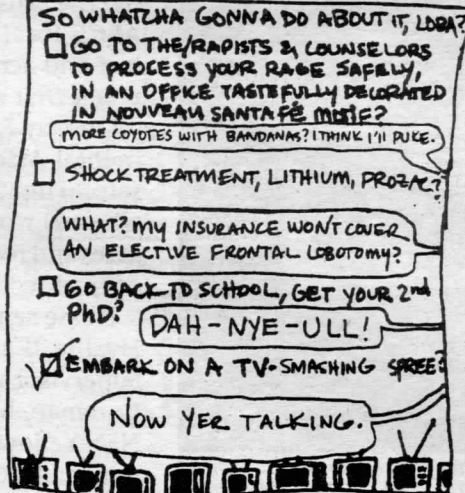 SO WHATCHA GONNA DO ABOUT IT, LOBA?
GO TO THE/RAPISTS & COUNSELORS
TO PROCESS YOUR RAGE SAFELY,
IN AN OFFICE TASTEFULLY DECORATED
IN NOUVEAU SANTA FÉ MOTIF?
MORE COYOTES WITH BANDANAS? I THINK I'll PUKE.
SHOCK TREATMENT, LITHIUM, PROZAC?
WHAT? MY INSURANCE WON'T COVER
AN ELECTIVE FRONTAL LOBOTOMY?
GO BACK TO SCHOOL, GET YOUR 2nd
PhD?
DAH-NYE-ULL!
EMBARK ON A TV-SMASHING SPREE?
NOW YER TALKING.